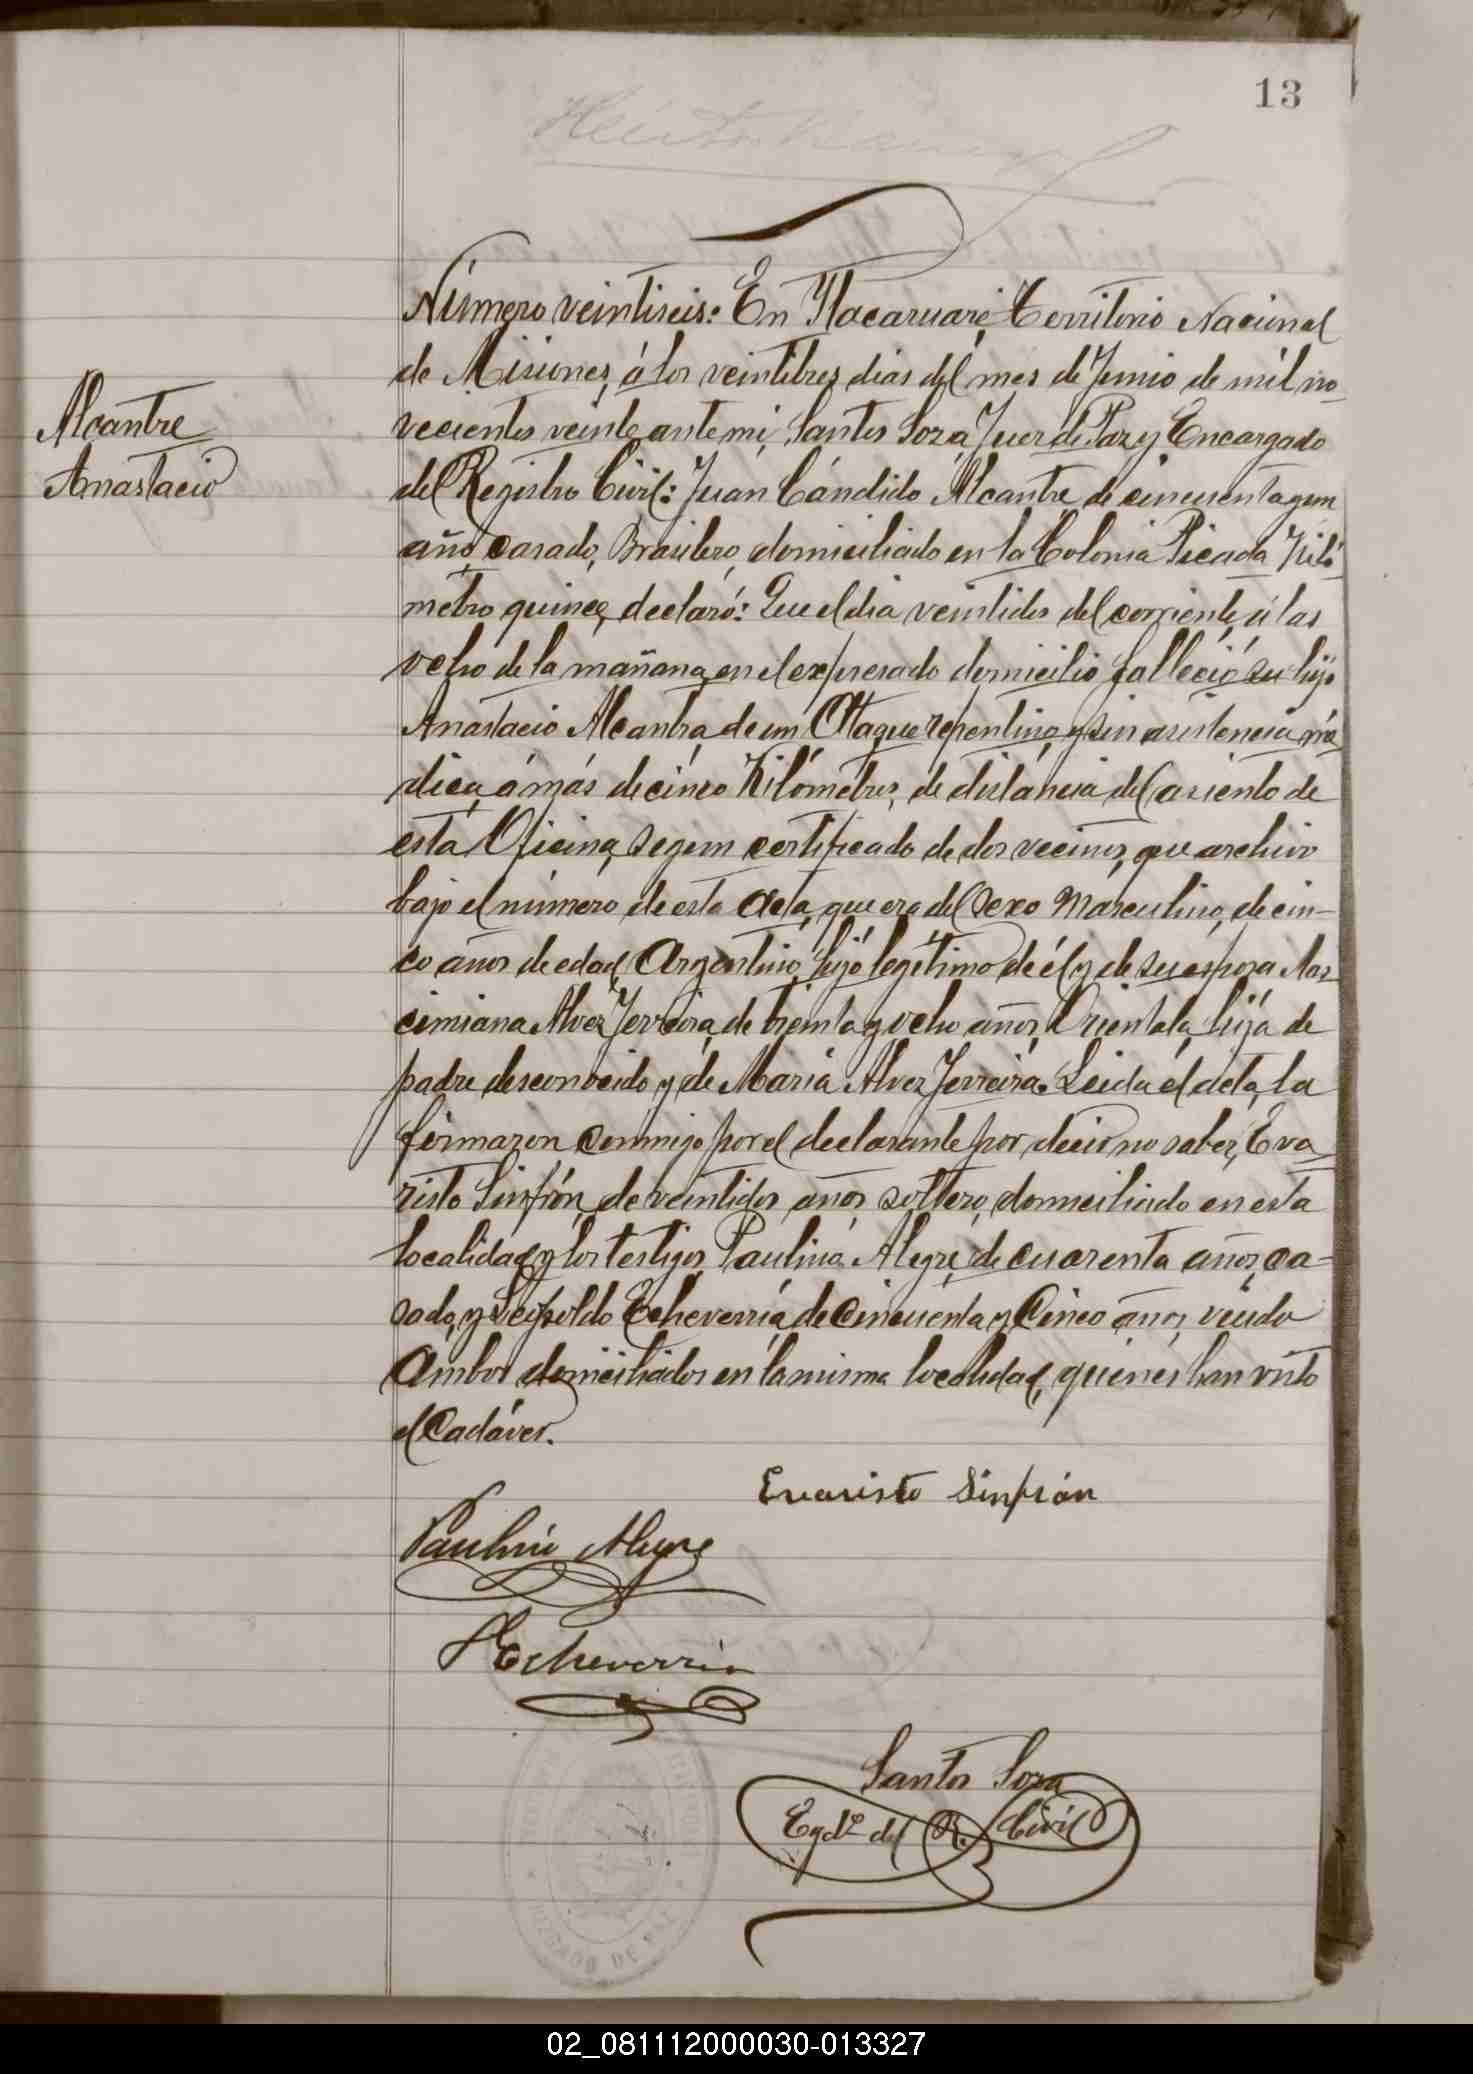 13
Alcantre
Anastacio
Número veintiseis: En Ytacaruaré, Territorio Nacional
de Misiones, á los veintitres dias del mes de Junio de mil no-
vecientos veinte ante mi, Santos Soza, Juez de Paz y Encargado
del Registro Civil: Juan Cándido Alcantre de cincuenta y un
años, casado, Brasilero, domiciliado en la Colonia Picada Kiló-
metro quince, declaró: Que el dia veintidos del corriente, á las
ocho de la mañana, en el expresado domicilio falleció su hijo
Anastacio Alcantra, de un Ataque repentino, y sin asistencia mé-
dica, á más de cinco Kilómetros, de distáncia del asiento de
esta Oficina, segun certificado de dos vecinos, que archivo
bajo el número de esta acta, que era del Sexo Masculino, de cin-
co años de edad, Argentino, hijo legítimo de él y de su esposa Mar-
cimiana Alvez Ferreira, de treinta y ocho años, Orientala, hija de
padre desconocido y de María Alvez Ferreira. Leida el acta, la
firmaron conmigo por el declarante por decir no saber, Eva-
risto Sinfrón, de veintidos años, soltero, domiciliado en esta
localidad, y los testigos, Paulino Alegre, de cuarenta años, ca-
sado, y Leopoldo Echeverría, de Cincuenta y Cinco años, viudo
Ambos domiciliados en la misma localidad, quienes han visto
el Cadáver.
Evaristo Sinfrón
Paulino Alegre
Echeverria
Santos Soza
Egdo del R. Civil
02_081112000030-013327